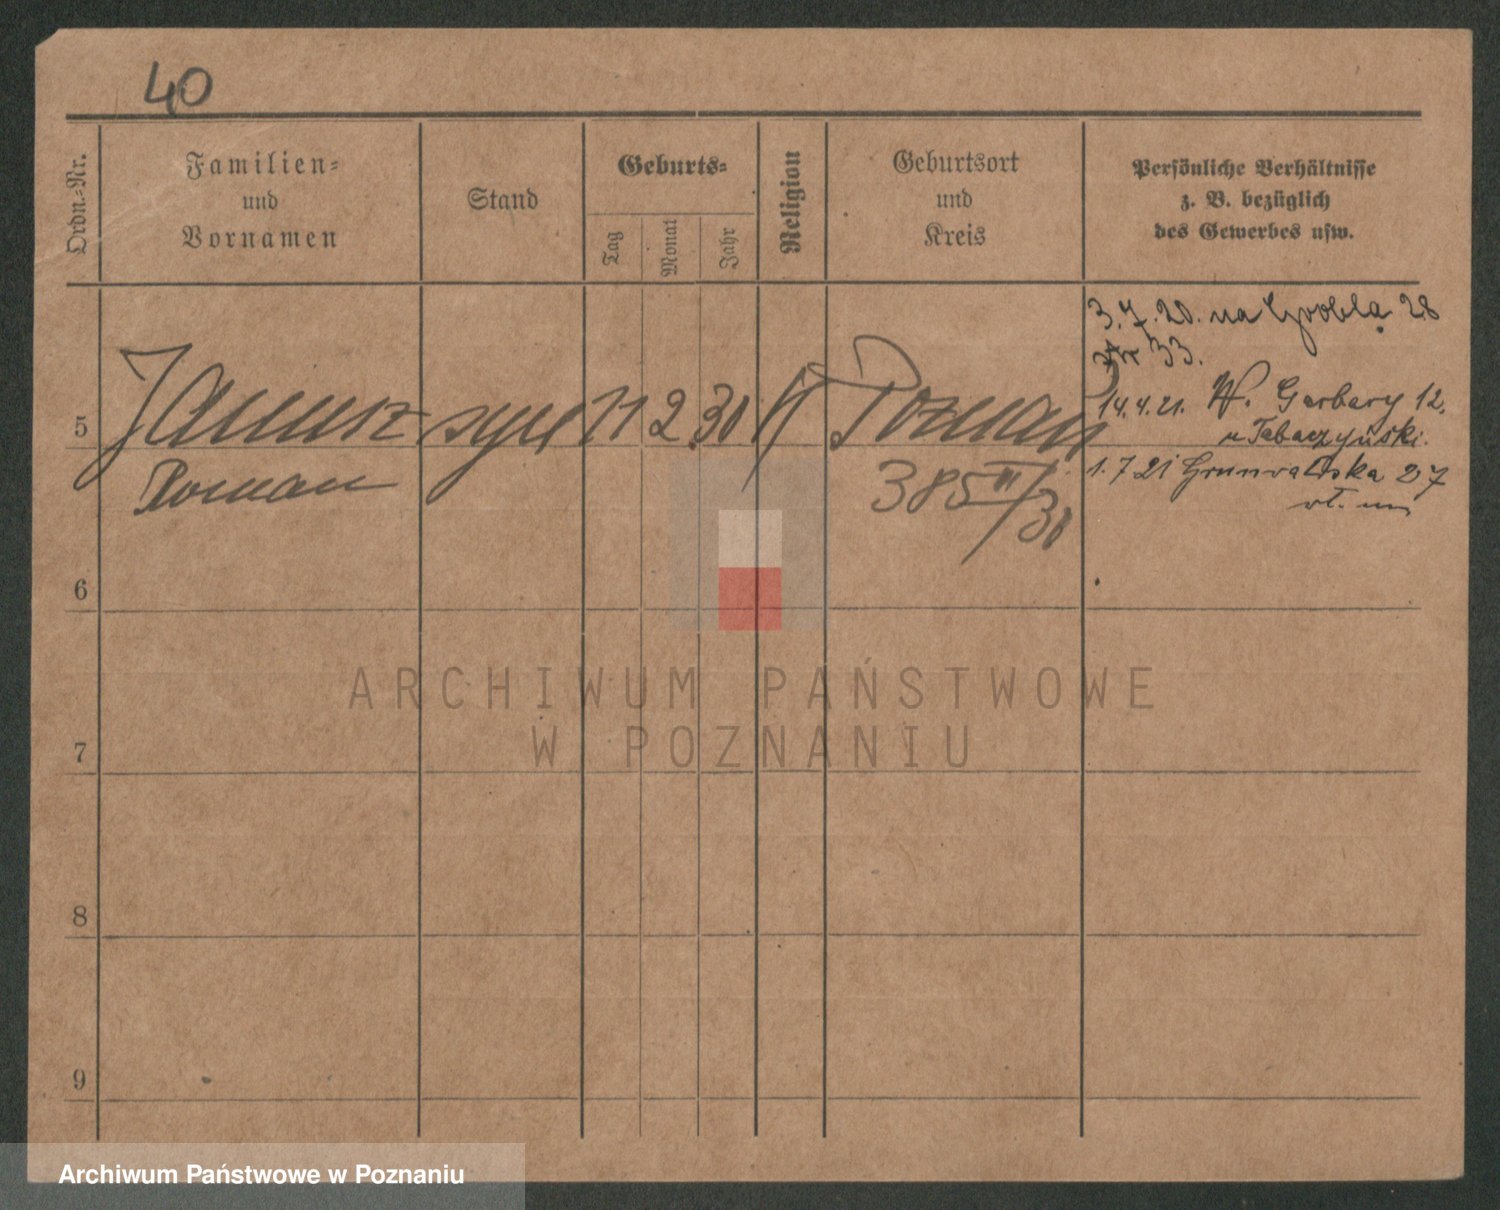 40
Ordn.-Nr.
Familien-
und
Vornamen
Stand
Geburts-
Tag
Monat
Jahr
Religion
Geburtsort
und
Kreis
Persönliche Verhältnisse
z. B. bezüglich
des Gewerbes usw.
5
Janusz syn 11 2 30 K Poznań
Roman
385 III/30
3.7.20. na Grobla 28
33.
14.4.21. W. Garbary 12.
u Tabaczyński.
1.7 21 Grunwaldska 27
6
7
8
9
ARCHIWUM PAŃSTWOWE
W POZNANIU
Archiwum Państwowe w Poznaniu